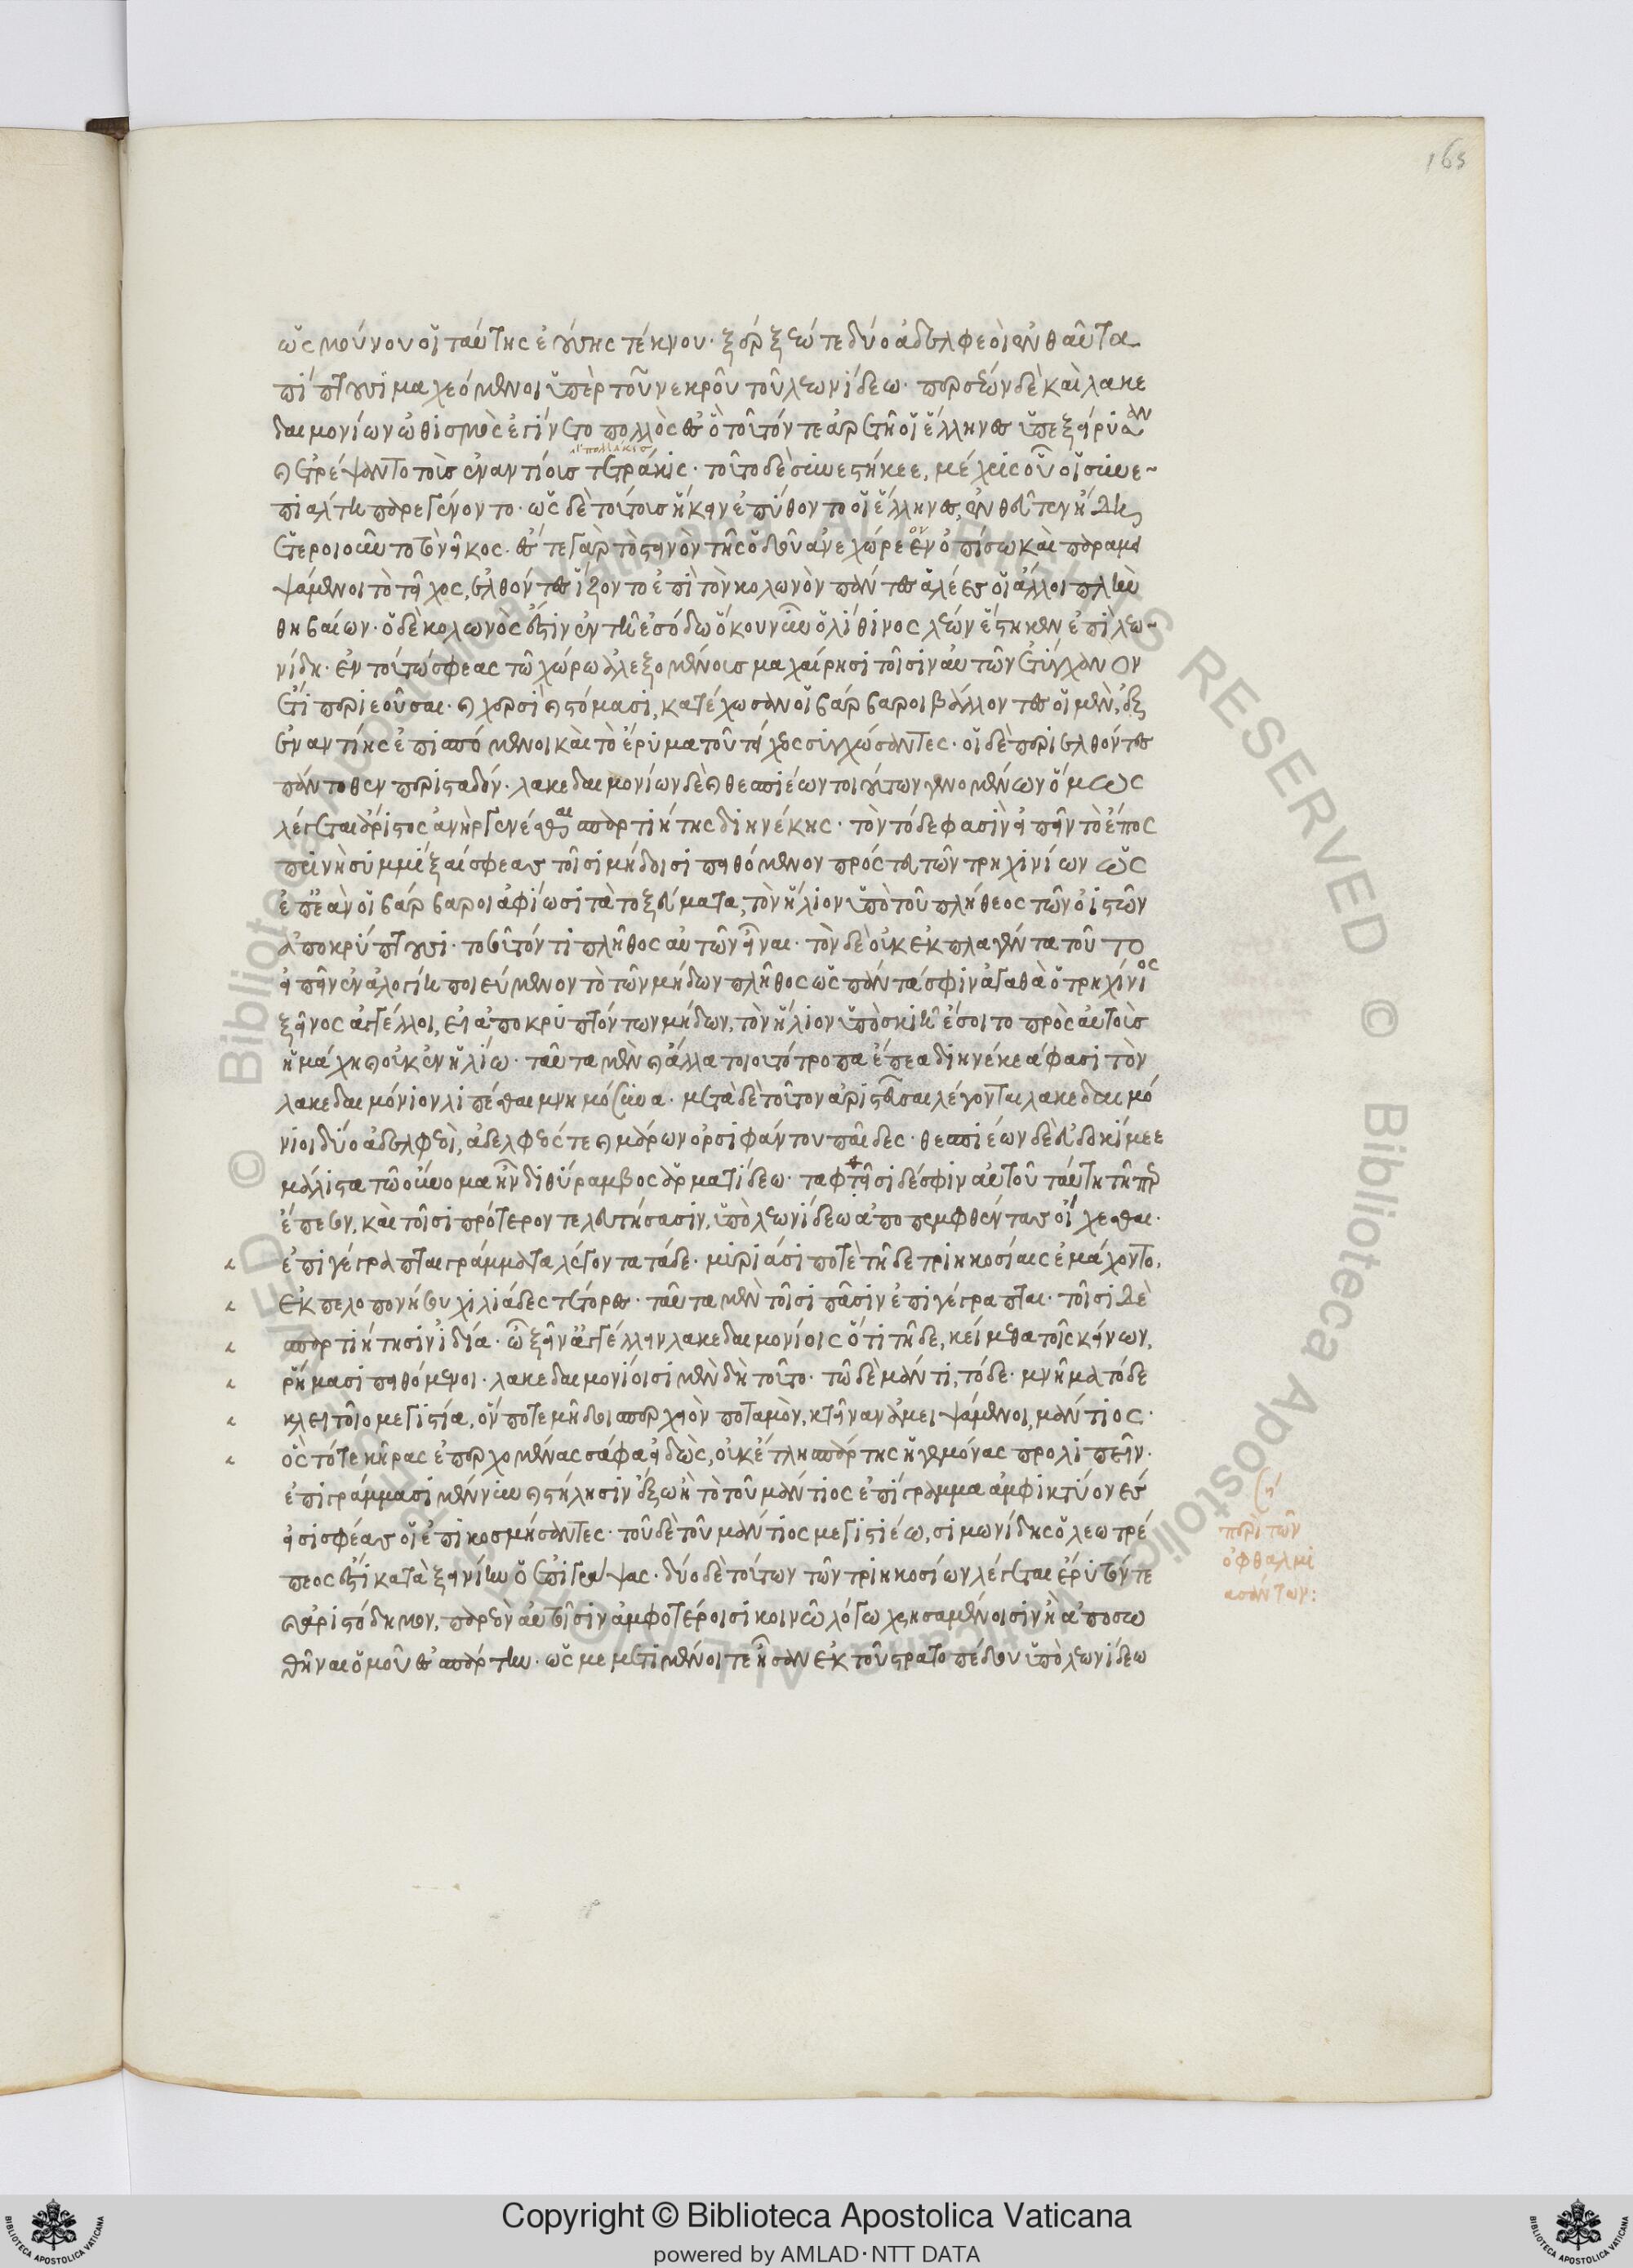 165
ὡς μούνου οἱ ταύτης ἐούσης τέκνου· ξέρξεώ τε δύο ἀδελφεοὶ ἐνθαῦτα
πίπτουσι μαχεόμενοι ὑπὲρ τοῦ νεκροῦ τοῦ λεωνίδεω· περσέων δὲ καὶ λακε
δαιμονίων ὠθισμὸς ἐγίνετο πολλὸς ἐς ὃ τοῦτόν τε ἀρετῇ οἱ ἕλληνες ὑπεξείρυσαν
καὶ ἐτρέψαντο τοὺς ἐναντίους τετράκις· τοῦτο δὲ συνεστήκεε, μέχρις οὗ οἱ σὺν ἐ
πιάλτῃ παρεγένοντο· ὡς δὲ τούτους ἥκειν ἐπύθοντο οἱ ἕλληνες, ἐνθεῦτεν ἤδη
ἑτεροιοῦτο τὸ νεῖκος· ἔς τε γὰρ τὸ στεινὸν τῆς ὁδοῦ ἀνεχώρεον ὀπίσω καὶ παραμει
ψάμενοι τὸ τεῖχος, ἐλθόντες ἵζοντο ἐπὶ τὸν κολωνὸν πάντες ἁλέες οἱ ἄλλοι πλὴν
θηβαίων· ὁ δὲ κολωνός ἐστιν ἐν τῇ ἐσόδῳ ὅκου νῦν ὁ λίθινος λέων ἕστηκεν ἐπὶ λεω
νίδῃ· ἐν τούτῳ σφέας τῷ χώρῳ ἀλεξομένους μαχαίρῃσι τοῖσιν αὐτῶν ἐτύγχανον
ἔτι περιεοῦσαι· καὶ χερσὶ καὶ στόμασι, κατέχωσαν οἱ βάρβαροι βάλλοντες οἱ μὲν, ἐξ
ἐναντίης ἐπισπόμενοι καὶ τὸ ἔρυμα τοῦ τείχεος συγχώσαντες· οἱ δὲ περιελθόντες
πάντοθεν περισταδόν· λακεδαιμονίων δὲ καὶ θεσπιέων τοιούτων γενομένων ὅμως
λέγεται ἄριστος ἀνὴρ γενέσθαι σπαρτιήτης διηνέκης· τὸν τόδε φασὶν εἰπεῖν τὸ ἔπος
πρὶν ἢ συμμίξαι σφέας τοῖσι μήδοισι πυθόμενον πρός τευ τῶν τρηχινίων ὡς
ἐπεὰν οἱ βάρβαροι ἀφίωσι τὰ τοξεύματα, τὸν ἥλιον ὑπὸ τοῦ πλήθεος τῶν ὀιστῶν
ἀποκρύπτουσι· τοσοῦτόν τι πλῆθος αὐτῶν εἶναι· τὸν δὲ οὐκ ἐκπλαγέντα τοῦτο
εἰπεῖν ἐν ἀλογίῃ ποιεύμενον τὸ τῶν μήδων πλῆθος ὡς πάντα σφιν ἀγαθὰ ὁ τρηχίνιος
ξεῖνος ἀγγέλλοι, εἰ ἀποκρυπτόντων μήδων, τὸν ἥλιον ὑπὸ σκιῇ ἔσοιτο πρὸς αὐτοὺς
ἡ μάχη καὶ οὐκ ἐν ἡλίῳ· ταῦτα μὲν καὶ ἄλλα τοιουτότροπα ἔπεα διηνέκεά φασι τὸν
λακεδαιμόνιον λιπέσθαι μνημόσυνα· μετὰ δὲ τοῦτον ἀριστεῦσαι λέγονται λακεδαιμό
νιοι δύο ἀδελφεοὶ, ἀδελφεός τε καὶ μάρων ὀρσιφάντου παῖδες· θεσπιέων δὲ εὐδοκίμεε
μάλιστα τῷ οὔνομα ἦν διθύραμβος ἁρματίδεω· ταφεῖσι δέ σφιν αὐτοῦ ταύτῃ τῇπερ
ἔπεσον, καὶ τοῖσι πρότερον τελευτήσασιν, ὑπὸ λεωνίδεω ἀποπεμφθέντας οἴχεσθαι·
ἐπιγέγραπται γράμματα λέγοντα τάδε· μυριάσι ποτὲ τῇδε τριηκοσίαις ἐμάχοντο,
ἐκ πελοπονήσου χιλιάδες τέτορες· ταῦτα μὲν τοῖσι πᾶσιν ἐπιγέγραπται· τοῖσι δὲ
σπαρτιήτησιν ἰδίᾳ· ὦ ξεῖν ἀγγέλλειν λακεδαιμονίοις ὅτι τῇδε, κείμεθα τοῖς κείνων,
ῥήμασι πειθόμενοι· λακεδαιμονίοισι μὲν δὴ τοῦτο· τῷ δὲ μάντι, τόδε· μνῆμα τόδε
κλειτοῖο μεγιστία, ὅν ποτε μῆδοι σπερχειὸν ποταμὸν, κτεῖναν ἀμειψάμενοι, μάντιος·
ὃς τότε κῆρας ἐπερχομένας σάφα εἰδὼς, οὐκ ἔτλη σπάρτης ἡγεμόνας προλιπεῖν·
ἐπιγράμμασι μέν νυν καὶ στήλησιν ἔξω ἢ τὸ τοῦ μάντιος ἐπίγραμμα ἀμφικτύονές
εἰσι σφέας οἱ ἐπικοσμήσαντες· τοῦ δὲ τοῦ μάντιος μεγιστιέω, σιμωνίδης ὁ λεωπρέ
πεός ἐστι κατὰ ξεινίην ὁ ἐπιγράψας· δύο δὲ τούτων τῶν τριηκοσίων λέγεται εὔρυτόν τε
καὶ ἀριστόδημον, παρεὸν αὐτοῖσιν ἀμφοτέροισι κοινῷ λόγῳ χρησαμένοισιν ἢ ἀποσω
θῆναι ὁμοῦ ἐς σπάρτην· ὡς μεμετιμένοι τε ἦσαν ἐκ τοῦ στρατοπέδου ὑπὸ λεωνίδεω
περὶ τῶν
ὀφθαλμι
ασάντων:
© Biblioteca Apostolica Vaticana
ALL RIGHTS RESERVED
Copyright © Biblioteca Apostolica Vaticana
powered by AMLAD·NTT DATA